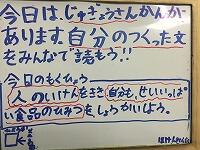 今日は、じゅぎょうさんかんが
あります。自分のつくった文
をみんなで読もう!!
今日のもくひょう
人のいけんをきき自分も、せいいっぱ
い食品のひみつをしょうかいしよう。